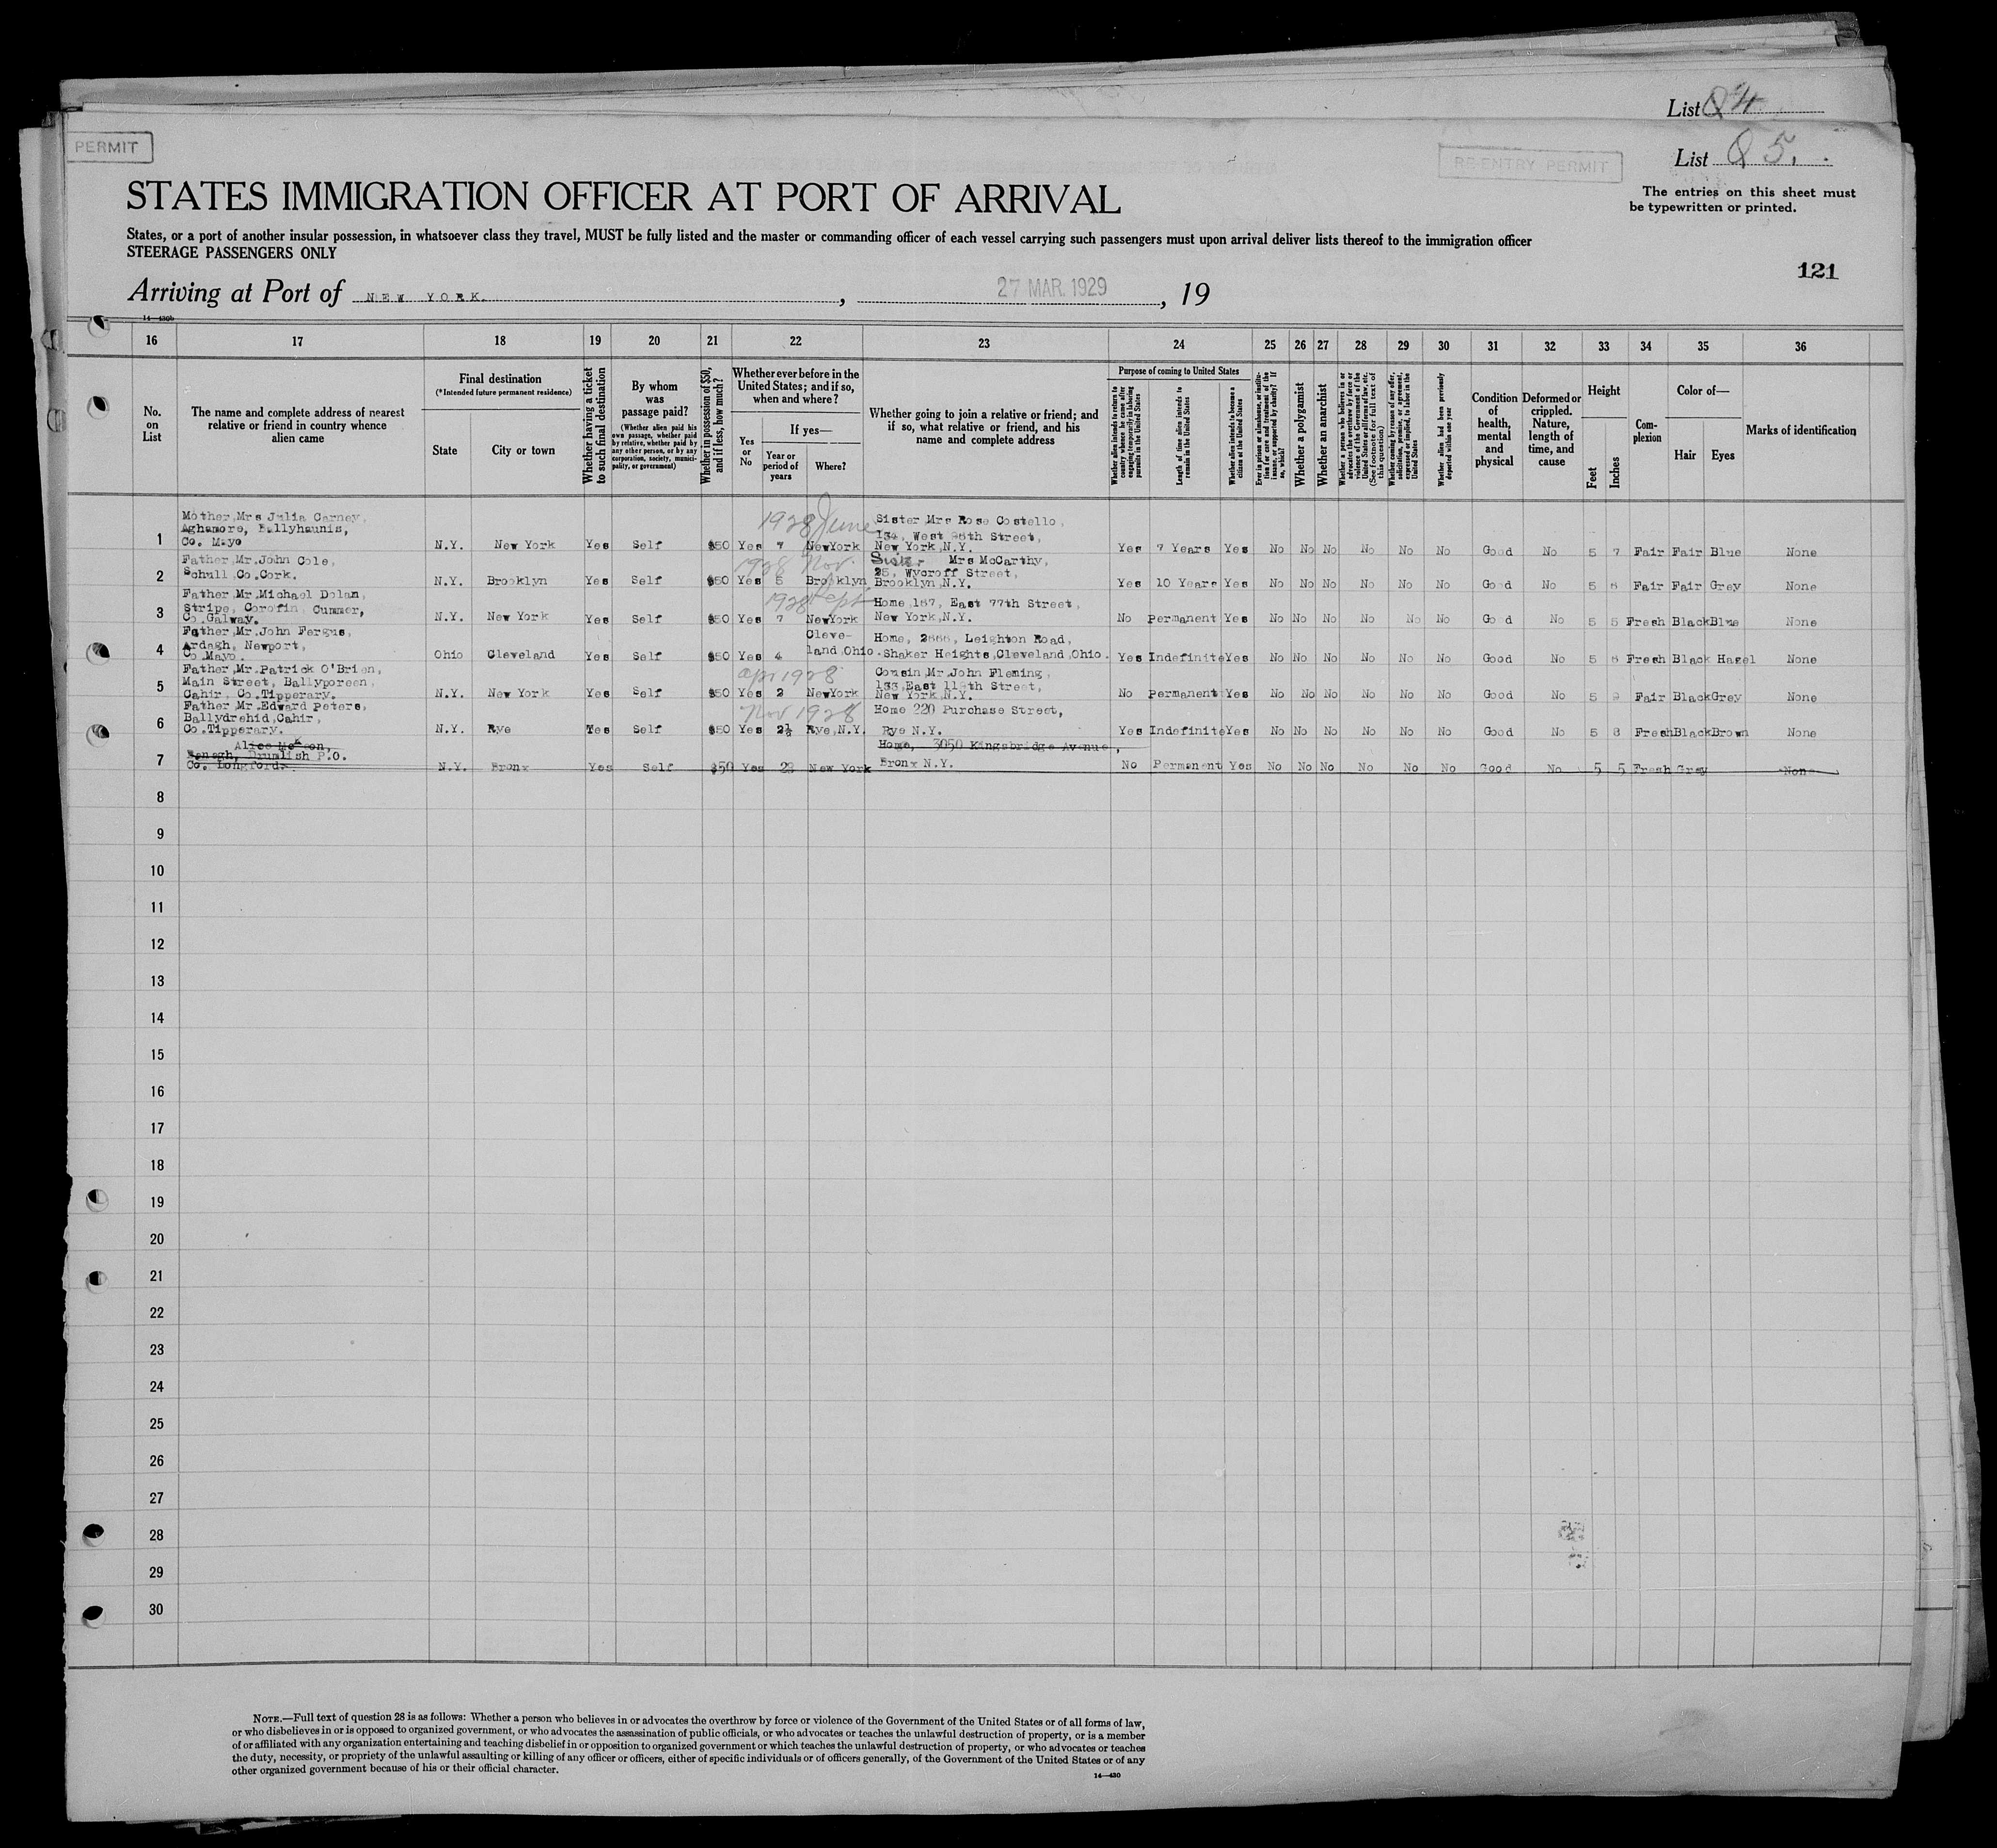 List Q4
PERMIT
RE-ENTRY PERMIT
List Q5.
STATES IMMIGRATION OFFICER AT PORT OF ARRIVAL
The entries on this sheet must
be typewritten or printed.
States, or a port of another insular possession, in whatsoever class they travel, MUST be fully listed and the master or commanding officer of each vessel carrying such passengers must upon arrival deliver lists thereof to the immigration officer
STEERAGE PASSENGERS ONLY
121
Arriving at Port of NEW YORK. , 27 MAR. 1929 , 19
14—430b
16 17 18 19 20 21 22 23 24 25 26 27 28 29 30 31 32 33 34 35 36
No. on List
The name and complete address of nearest relative or friend in country whence alien came
Final destination
(*Intended future permanent residence)
State
City or town
Whether having a ticket to such final destination
By whom was passage paid?
(Whether alien paid his own passage, whether paid by relative, whether paid by any other person, or by any corporation, society, municipality, or government)
Whether in possession of $50, and if less, how much?
Whether ever before in the United States; and if so, when and where?
Yes or No
If yes—
Year or period of years
Where?
Whether going to join a relative or friend; and if so, what relative or friend, and his name and complete address
Purpose of coming to United States
Whether alien intends to return to country whence he came after engaging temporarily in laboring pursuits in the United States
Length of time alien intends to remain in the United States
Whether alien intends to become a citizen of the United States
Ever in prison or almshouse, or institution for care and treatment of the insane, or supported by charity? If so, which?
Whether a polygamist
Whether an anarchist
Whether a person who believes in or advocates the overthrow by force or violence of the Government of the United States or all forms of law, etc. (See footnote for full text of this question)
Whether coming by reason of any offer, solicitation, promise, or agreement, expressed or implied, to labor in the United States
Whether alien had been previously deported within one year
Condition of health, mental and physical
Deformed or crippled. Nature, length of time, and cause
Height
Feet
Inches
Complexion
Color of—
Hair
Eyes
Marks of identification
Mother, Mrs Julia Carney,
Aghamore, Ballyhaunis,
Co. Mayo
1928 June
Sister Mrs Rose Costello,
134, West 96th Street,
New York,N.Y.
1 N.Y. New York Yes Self $50 Yes 7 NewYork Yes 7 Years Yes No No No No No No Good No 5 7 Fair Fair Blue None
Father, Mr. John Cole,
Schull, Co.Cork.
1928 Nov.
Sister Mrs McCarthy,
25, Wycroff Street,
Brooklyn,N.Y.
2 N.Y. Brooklyn Yes Self $50 Yes 5 Brooklyn Yes 10 Years Yes No No No No No No Good No 5 6 Fair Fair Grey None
Father, Mr. Michael Dolan,
Stripe, Corofin, Cummer,
Co.Galway.
1928 Sept
Home,167, East 77th Street,
New York,N.Y.
3 N.Y. New York Yes Self $50 Yes 7 NewYork No Permanent Yes No No No No No No Good No 5 5 Fresh Black Blue None
Father, Mr. John Fergus,
Ardagh, Newport,
Co.Mayo.
Cleveland,Ohio.
Home, Leighton Road,
Shaker Heights,Cleveland,Ohio.
4 Ohio Cleveland Yes Self $50 Yes 4 Yes Indefinite Yes No No No No No No Good No 5 6 Fresh Black Hazel None
Father, Mr.Patrick O'Brien,
Main Street, Ballyporeen,
Cahir, Co.Tipperary.
Apr 1928
Cousin, Mr. John Fleming,
133, East 119th Street,
New York,N.Y.
5 N.Y. New York Yes Self $50 Yes 2 NewYork No Permanent Yes No No No No No No Good No 5 9 Fair Black Grey None
Father, Mr.Edward Peters,
Ballydrehid,Cahir,
Co.Tipperary.
Nov 1928
Home 220 Purchase Street,
Rye N.Y.
6 N.Y. Rye Yes Self $50 Yes 2½ Rye,N.Y. Yes Indefinite Yes No No No No No No Good No 5 8 Fresh Black Brown None
Alice McKeon,
Drumlish P.O.
Co. Longford.
Home, 3050 Kingsbridge Avenue,
Bronx N.Y.
7 N.Y. Bronx Yes Self $50 Yes 28 New York No Permanent Yes No No No No No No Good No 5 5 Fresh Grey None
8
9
10
11
12
13
14
15
16
17
18
19
20
21
22
23
24
25
26
27
28
29
30
NOTE.—Full text of question 28 is as follows: Whether a person who believes in or advocates the overthrow by force or violence of the Government of the United States or of all forms of law,
or who disbelieves in or is opposed to organized government, or who advocates the assassination of public officials, or who advocates or teaches the unlawful destruction of property, or is a member
of or affiliated with any organization entertaining and teaching disbelief in or opposition to organized government or which teaches the unlawful destruction of property, or who advocates or teaches
the duty, necessity, or propriety of the unlawful assaulting or killing of any officer or officers, either of specific individuals or of officers generally, of the Government of the United States or of any
other organized government because of his or their official character.
14—430